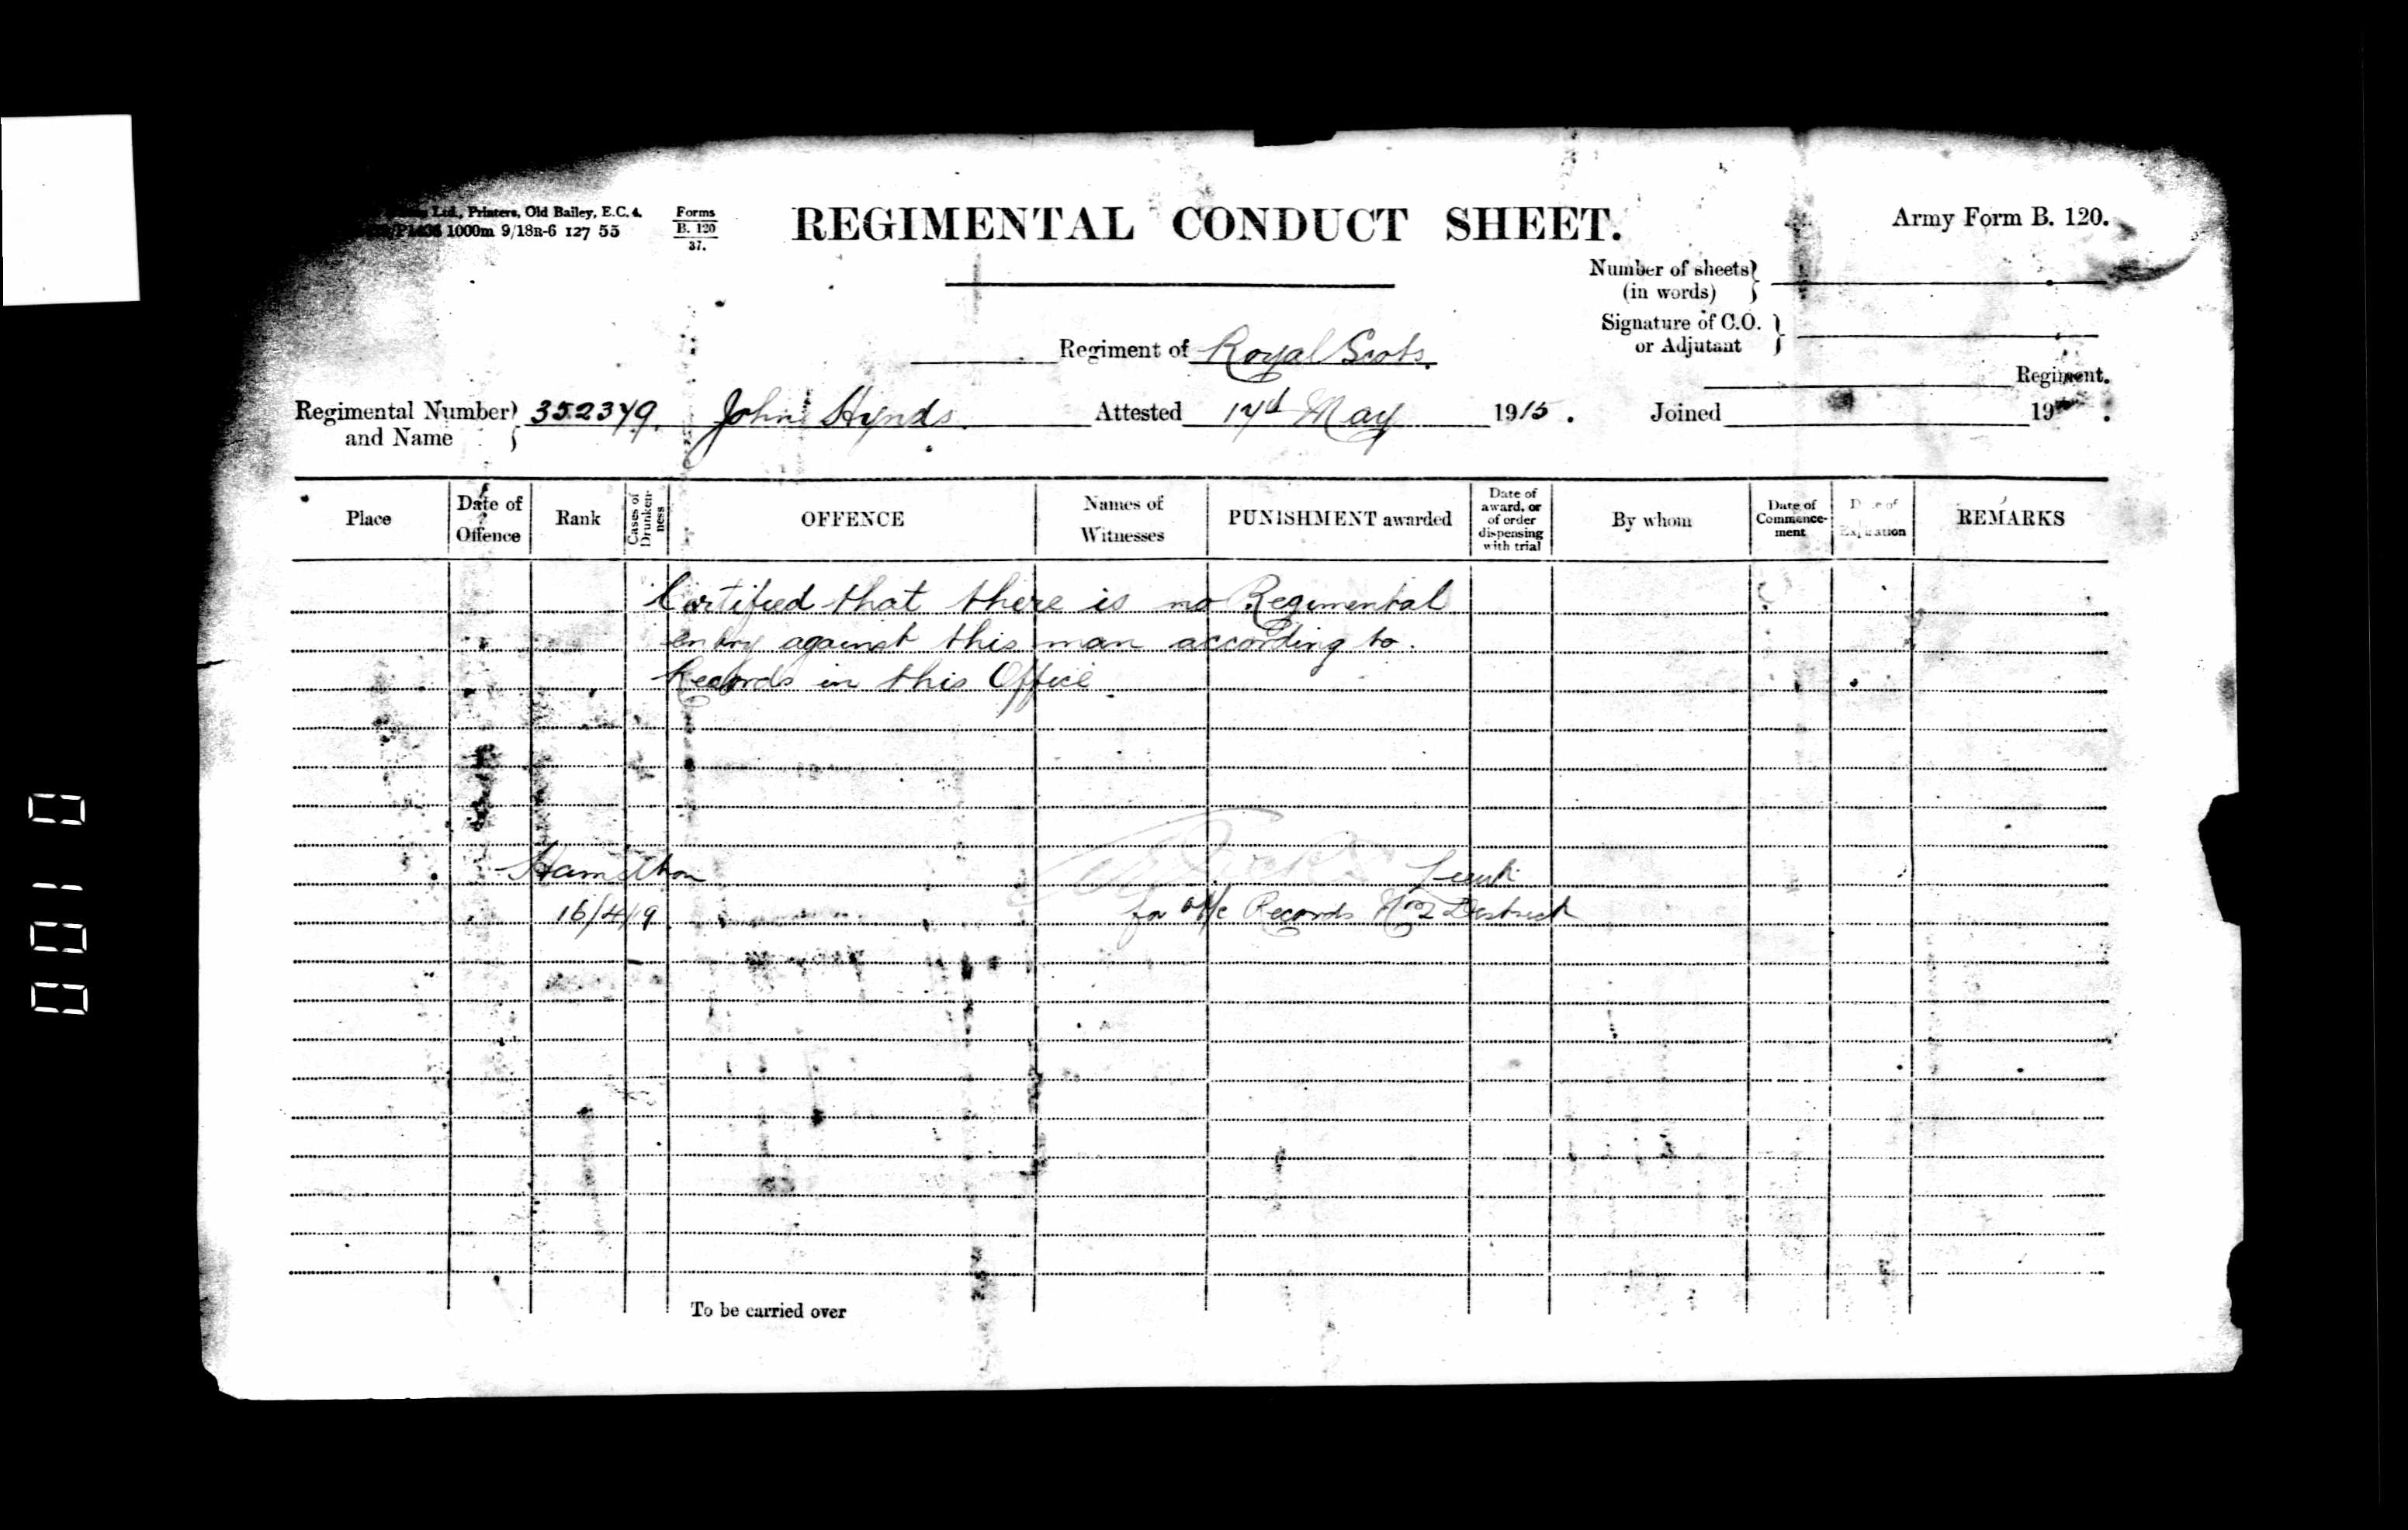 Ltd., Printers, Old Bailey, E.C. 4.
1000m 9/18R-6 127 55
Forms
B. 120
37.
REGIMENTAL CONDUCT SHEET.
Army Form B. 120.
Number of sheets
(in words)
Signature of C.O.
or Adjutant
Regiment of Royal Scots.
Regiment.
Regimental Number
and Name
352379. John Hynds. Attested 17th May 1915. Joined 19 .
Place
Date of
Offence
Rank
Cases of
Drunken-
ness
OFFENCE
Names of
Witnesses
PUNISHMENT awarded
Date of
award, or
of order
dispensing
with trial
By whom
Date of
Commence-
ment
Date of
Expiration
REMARKS
Certified that there is no Regimental
entry against this man according to.
Records in this Office.
Hamilton
Lieut.
16/4/19
for o/i/c Records No 2 District
To be carried over
0010